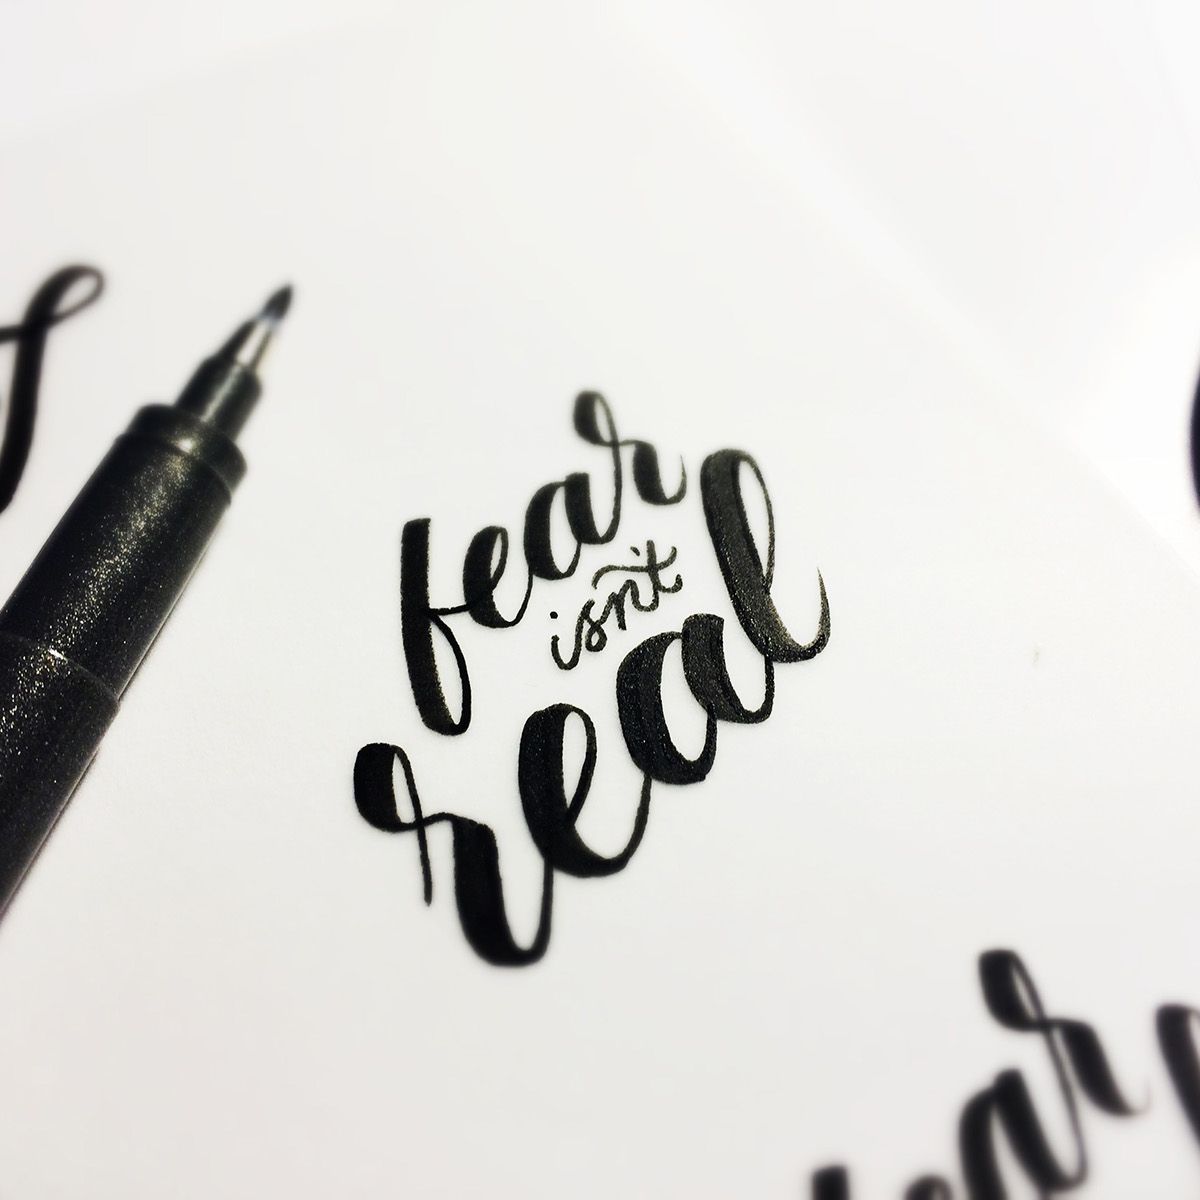 fear
isn't
real
ear